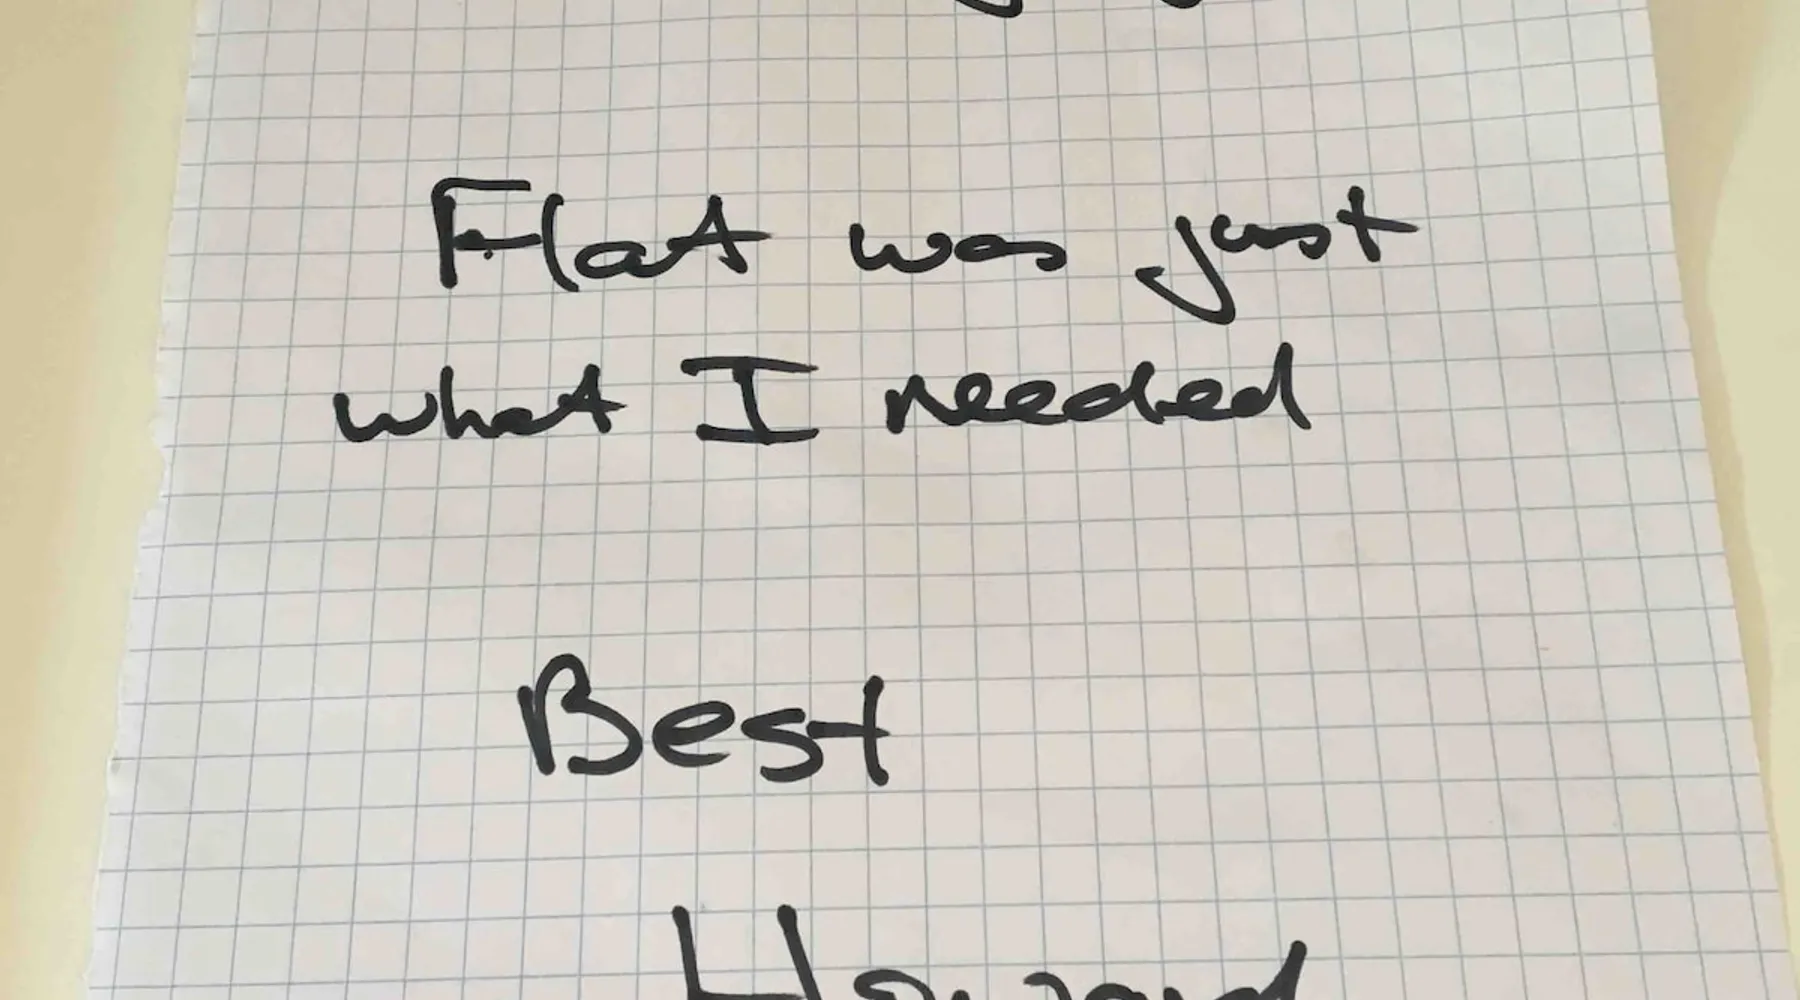 Flat was just
what I needed
Best
Howard